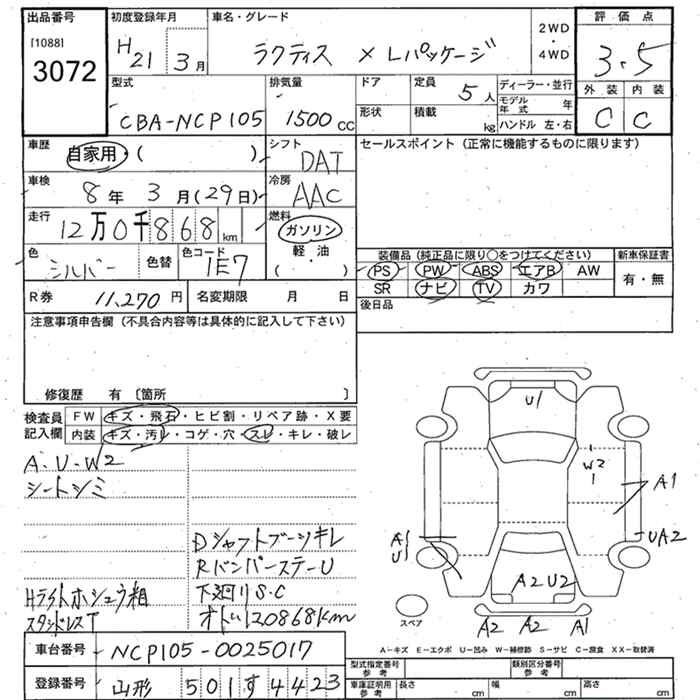 出品番号
[1088]
3072
初度登録年月
H21 3月
車名・グレード
ラクティス X Lパッケージ
2WD
・
4WD
評価点
3.5
型式
CBA-NCP105
排気量
1500cc
ドア
定員
5人
形状
積載
kg
ディーラー・並行
モデル年式 年
ハンドル 左・右
外装 内装
C C
車歴
自家用・( )
シフト
DAT
セールスポイント (正常に機能するものに限ります)
車検
8年 3月(29日)
冷房
AAC
走行
12万0千868km
燃料
ガソリン
軽・油
( )
色
シルバー
色替
色コード
1E7
装備品 (純正品に限り○をつけてください)
新車保証書
PS PW ABS エアB AW
SR ナビ TV カワ
有・無
R券 11,270円
名変期限 月 日
後日品
注意事項申告欄 (不具合内容等は具体的に記入して下さい)
修復歴 有 〔箇所 〕
検査員記入欄
FW キズ・飛石・ヒビ割・リペア跡・X要
内装 キズ・汚レ・コゲ・穴・スレ・キレ・破レ
A・U・W2
シートシミ
Dシャフトブーツキレ
RバンパーステーU
Hライトホシュウ相
下廻りS・C
スタッドレスT
120868km
U1
W2
1
A1
UA2
A1
U1
A2U2
A2 A2 A1
スペア
A-キズ E-エクボ U-凹み W-補修跡 S-サビ C-腐食 XX-取替済
車台番号 NCP105-0025017
登録番号 山形 501す4423
型式指定番号
参考
類別区分番号
参考
車庫証明用
参考
長さ cm
幅 cm
高さ cm